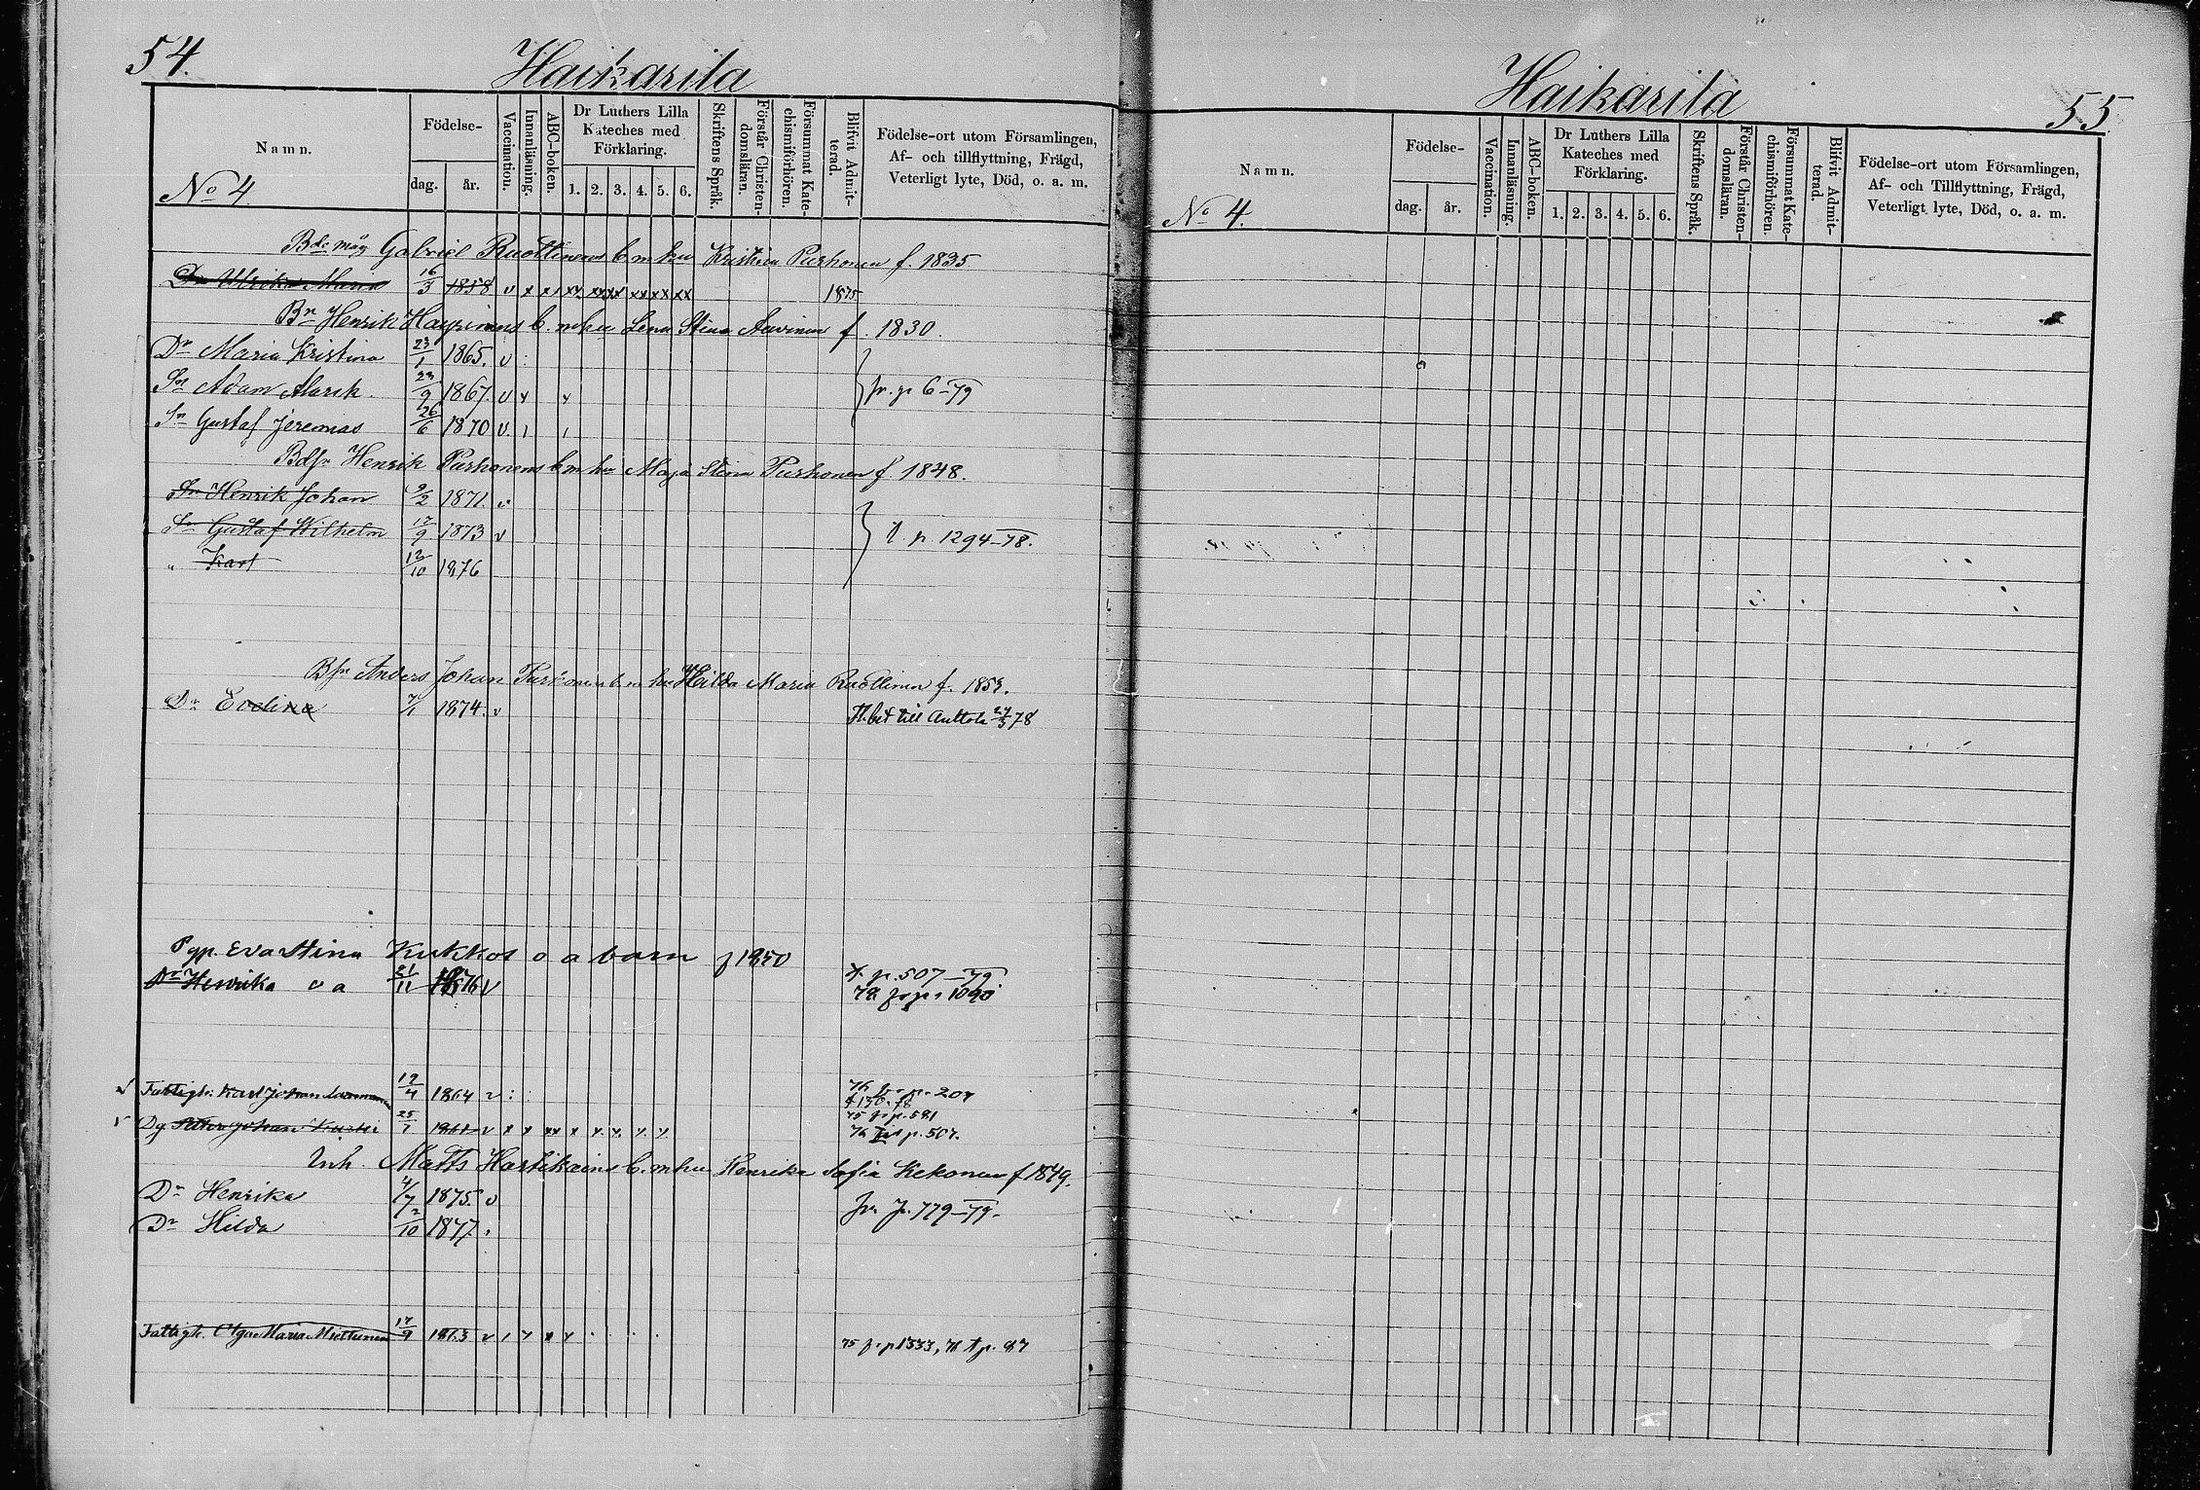 54.
Haikarila
Namn.
No 4
Födelse-
dag.
år.
Vaccination.
Innanläsning.
ABC-boken.
Dr Luthers Lilla
Kateches med
Förklaring.
1. 2. 3. 4. 5. 6.
Skriftens Språk.
Förstår Christen-
domsläran.
Försummat Kate-
chismiförhören.
Blifvit Admit-
terad.
Födelse-ort utom Församlingen,
Af- och tillflyttning, Frägd,
Veterligt lyte, Död, o. a. m.
Gabriel Ruottinens b. m hu Kristina Purhonen f. 1835
Dr Ulrika Maria 16/3 1858 v x x x xx xx xx xx xx xx 1875
Bn Henrik b. m hu Lena Stina Auvinen f. 1830.
Dr Maria Kristina 23/1 1865. v :
Sn Adam Mark. 23/9 1867. v x x
fr. p 6-79
Sn Gustaf Jeremias 26/6 1870 v.
Henrik Purhonens b m hu Maja Stina Purhonen f 1848.
Sn Henrik Johan 9/2 1871. v
Sn Gustaf Wilhelm 17/9 1873 v
t. p. 1294-78.
" Karl 12/10 1876
Anders Johan b. m hu Hilda Maria Ruottinen f. 1853.
Dr Evelina 7/1 1874. v
Fl. bet till Anttola 27/3 78
Eva Stina Kukkos o a barn f 1850
Dr Henrika o a 21/11 1876 v
t. p. 507-79
78 fr p. 1090
Fattigh. Karl Johan 19/4 1864 v :
76 fr p. 207
Dg Petter Johan 25/7 1861 v x x xx x x. x. x. x
75 fr p. 581
76 p. 507.
Inh. Matts Hartikains b. m hu Henrika Sofia Kekonen f 1849.
Dr Henrika 4/7 1875. v
fr. p. 779-79.
Dr Hilda 2/10 1877.
Fattigh. Olga Maria Miettinen 17/9 1863 v
75 fr p 1333, 76 t p. 87
Haikarila
55
Namn.
No 4.
Födelse-
dag.
år.
Vaccination.
Innanläsning.
ABC-boken.
Dr Luthers Lilla
Kateches med
Förklaring.
1. 2. 3. 4. 5. 6.
Skriftens Språk.
Förstår Christen-
domsläran.
Försummat Kate-
chismiförhören.
Blifvit Admit-
terad.
Födelse-ort utom Församlingen,
Af- och Tillflyttning, Frägd,
Veterligt lyte, Död, o. a. m.